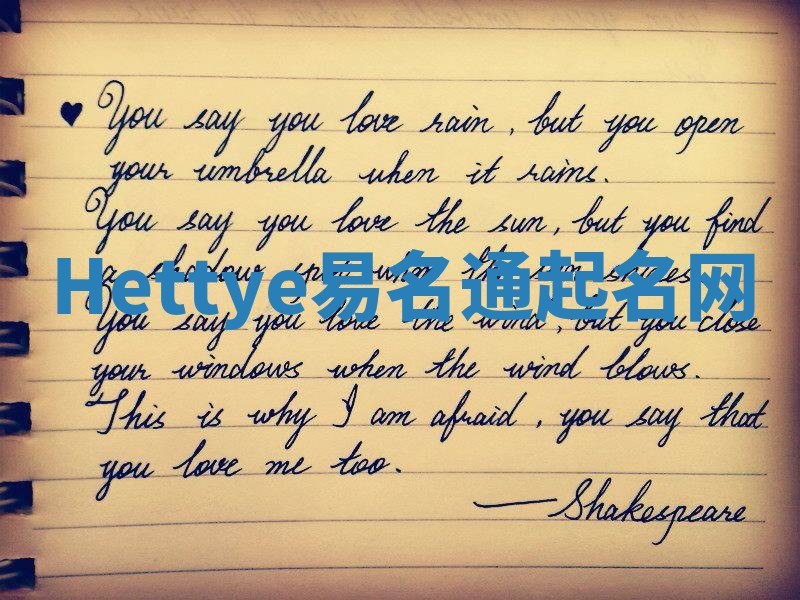 ♥ You say you love rain, but you open
your umbrella when it rains.
You say you love the sun, but you find
a shadow spot when the sun shines
Hettye易名通起名网
You say you love the wind, but you close
your windows when the wind blows.
This is why I am afraid, you say that
you love me too.
—Shakespeare